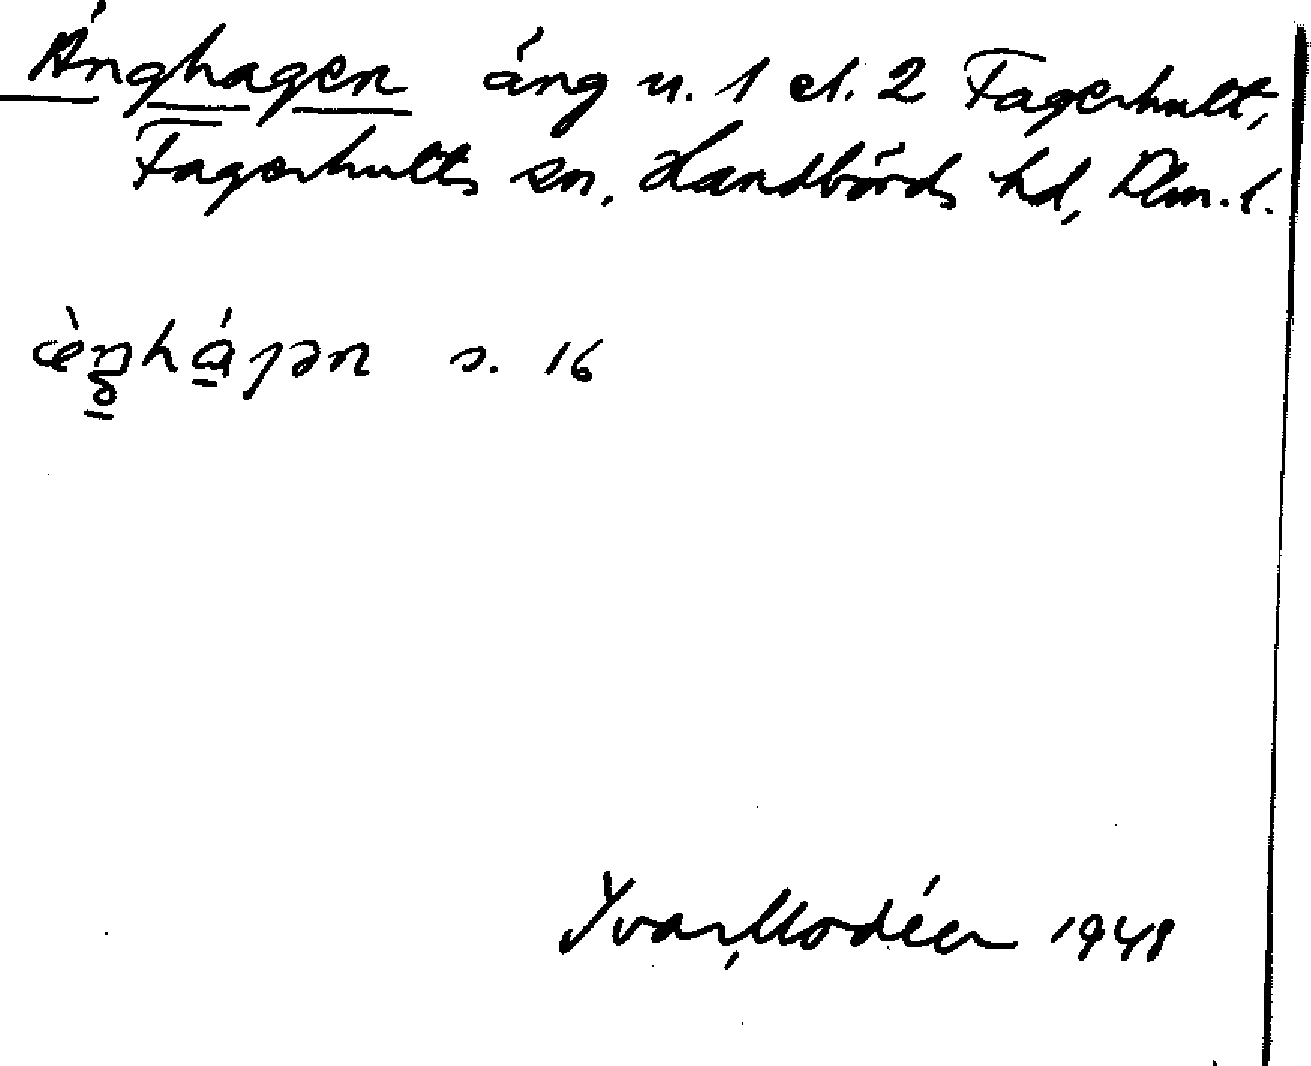 Änghagen äng u. 1 el. 2 Fagerhult,
Fagerhults sn, Handbörds hd, Klm. l.
s. 16
Ivar Modéer 1948